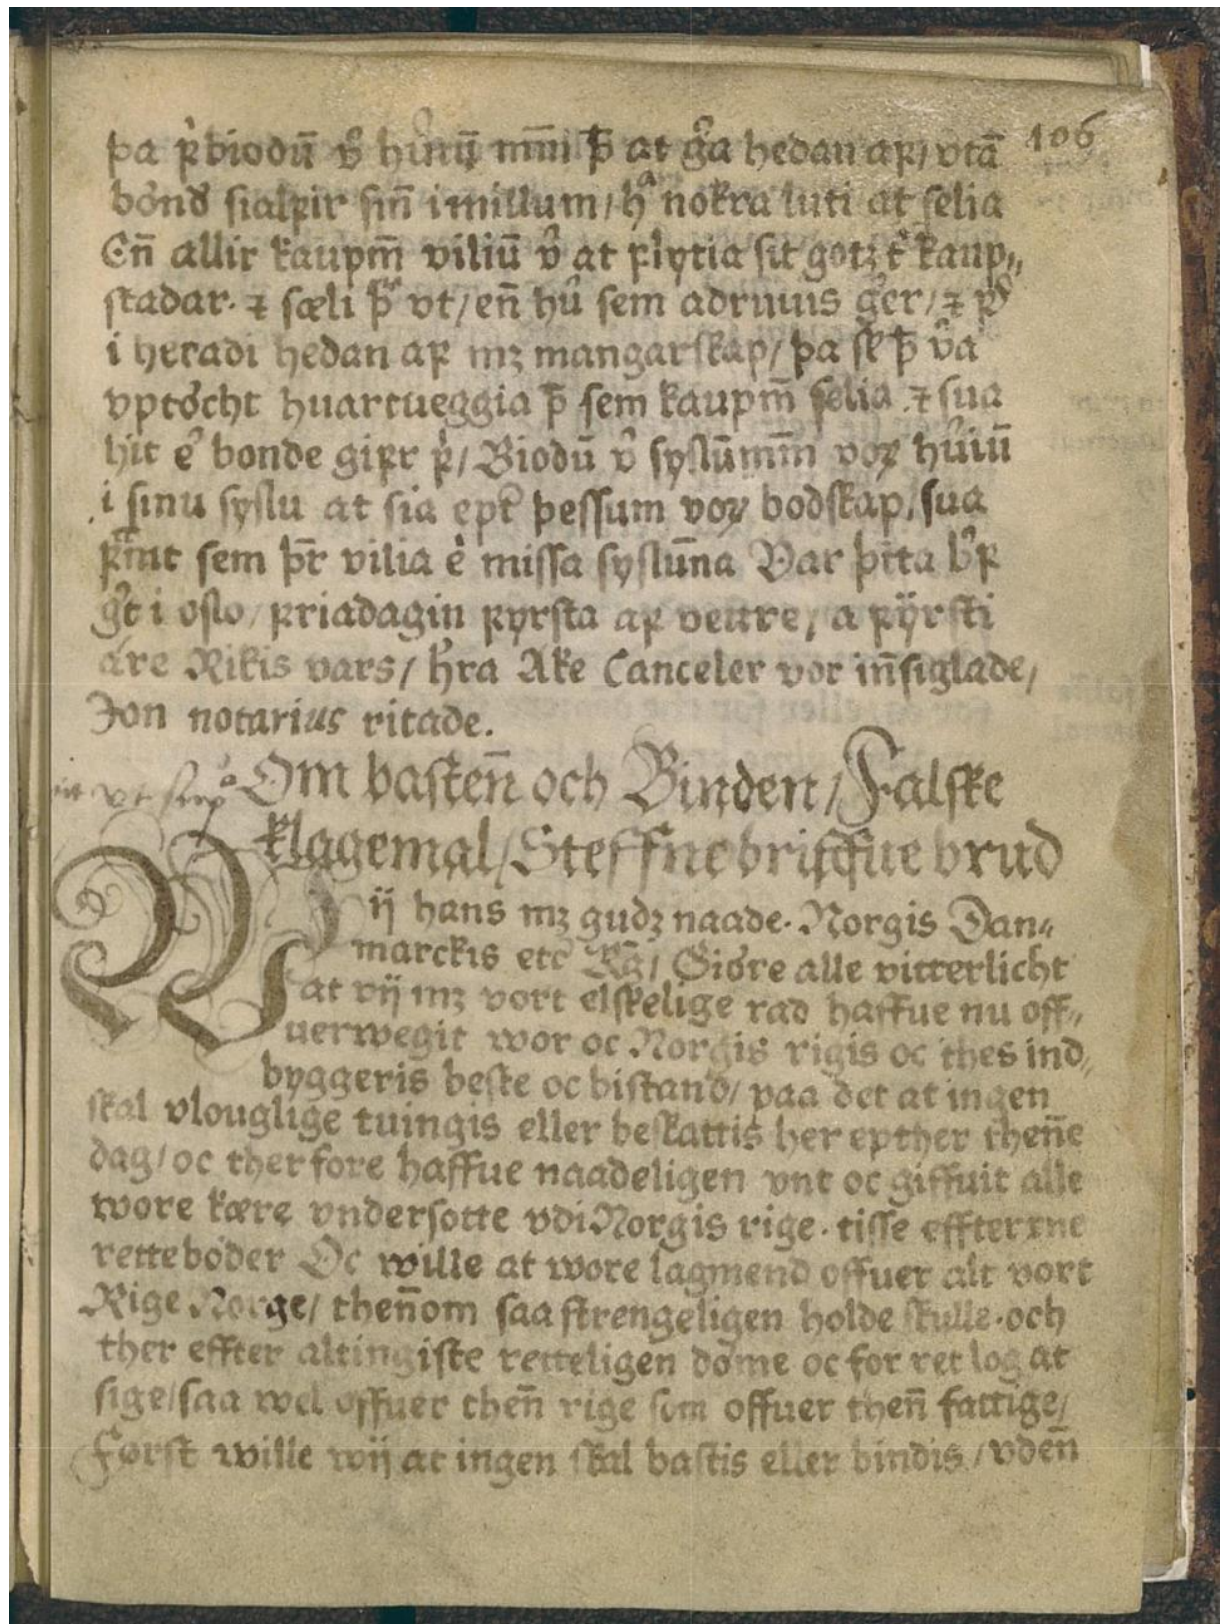 106
þa ꝼ͛biodū v͛ hu͛iū mm̄i þ̄ at g͛a hedan aꝼ/ vtā
bönd͛ sialꝼir sin̄ i millum/ hͣ nokra luti at selia
En̄ allir kaupm̄ viliū v͛ at ꝼlytia sit gotz t͛ kaup„
stadar. ⁊ sæli þͬ vt/ en̄ hu͛ sem adruuis g͛er/ ⁊ ꝼ͛
i heradi hedan aꝼ mꝫ mangarskap/ þa sk̄ þ̄ v͛a
vptöcht huartueggia þ̄ sem kaupm̄ selia ⁊ sua
hit e͛ bonde giꝼr ꝼ͛/ Biodū v͛ syslūmm̄ voꝝ hu͛iū
i sinu syslu at sia ept͛ þessum voꝝ bodskap/ sua
ꝼͣmt sem þr̄ vilia e͛ missa syslun̄a Var þtta b͛ꝼ
g͛t i oslo/ ꝼriadagin ꝼyrsta aꝼ vettre/ a ꝼÿrsti
áre Rikis vars/ h͛ra Ake Canceler vor in̄siglade/
Jon notarius ritade.
Om basten̄ och Binden/ Falske
klagemal/ Steffnebriffue brud
Wij hans mꝫ gudꝫ naade. Norgis Dan„
marckis etc̄ Kḡ/ Giöre alle vitterlicht
at vij mꝫ vort elskelige rad haffue nu off„
uerwegit wor oc Norgis rigis oc thes ind„
byggeris beste oc bistand/ paa det at ingen
skal vlouglige tuingis eller beskattis her epther then̄e
dag/ oc ther fore haffue naadeligen vnt oc giffuit alle
wore kære vndersotte vdi Norgis rige. tisse effterxne
retteböder Oc wille at wore lagmend offuer alt vort
Rige Norge/ then̄om saa strengeligen holde skulle. och
ther effter altingiste retteligen döme oc for ret log at
sige/ saa wel offuer then̄ rige som offuer then̄ fattige/
Først wille wij at ingen skal bastis eller bindis/ vden̄